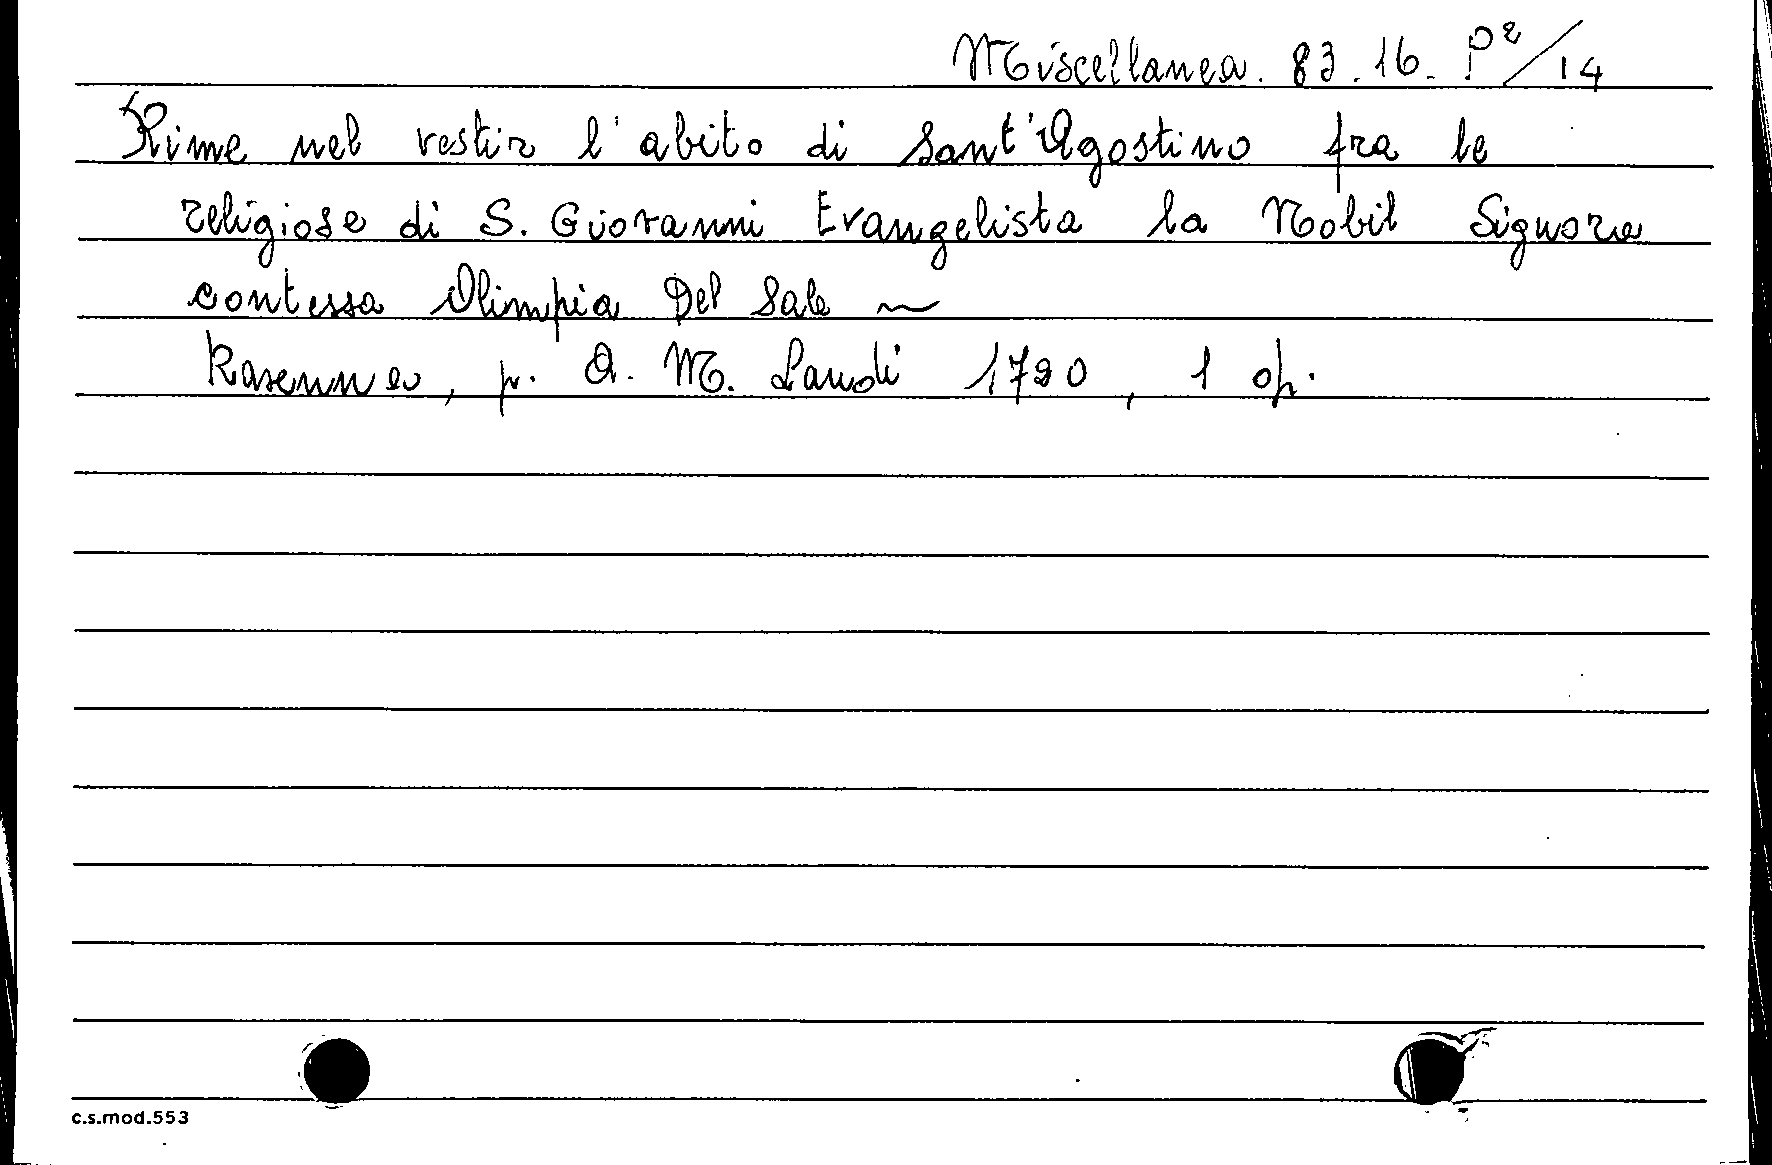 Miscellanea. 83.16. P²/14
Rime nel vestir l'abito di Sant'Agostino fra le
religiose di S. Giovanni Evangelista la Nobil Signora
contessa Olimpia Del Sale ~
Ravenna, p. A. M. Landi 1720, 1 op.
c.s.mod.553